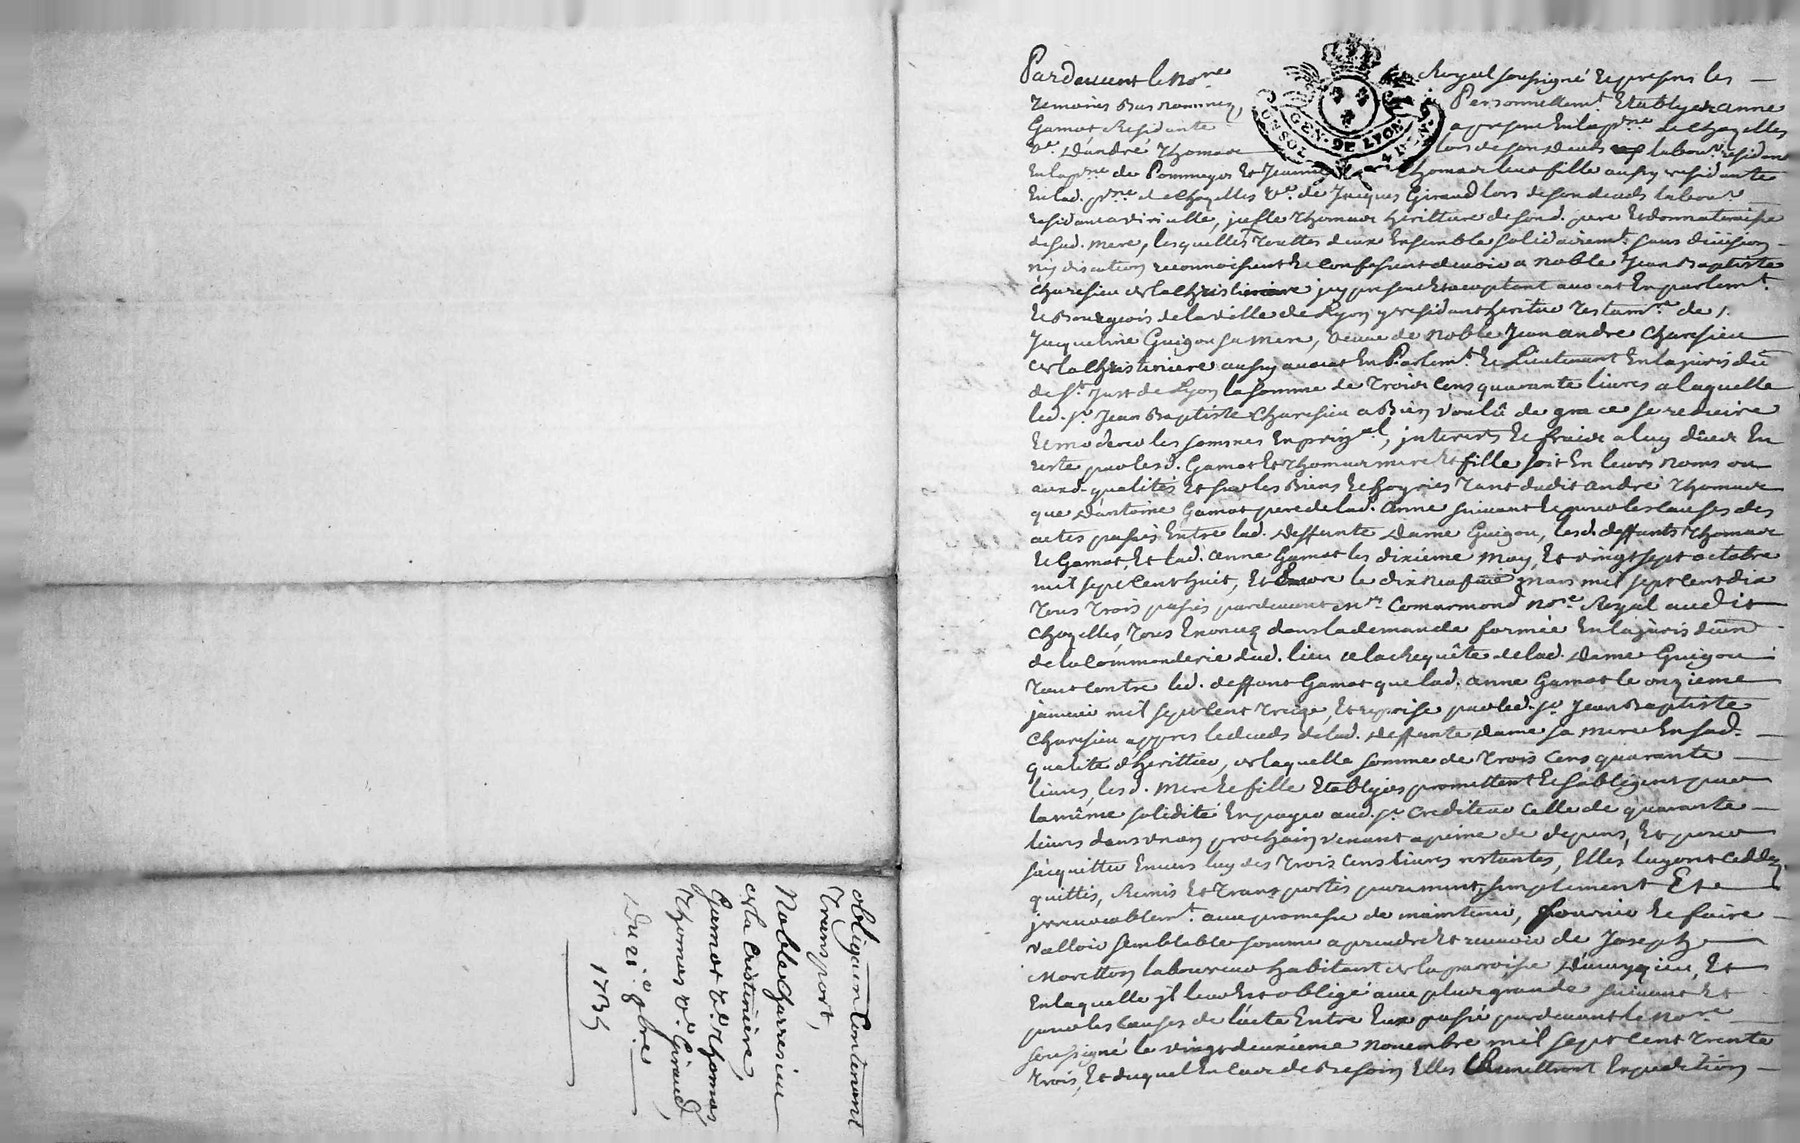 Pardevant le No.re Royal soussigné et presens les
temoins Bas nommez, Personnellem.t Establyes anne
Gamot Residante a present En la p.sse de Chazelles
v.e D'andré Thomas lors de son deceds labour. residant
En la p.sse de Pommeys Et Jeanne Thomas leur fille aussy residante
En lad. p.sse de Chazelles v.e de Jacques Giraud lors de son deceds labour.
residant a viricelle, jcelle Thomas heritiere de sond. pere Et donnataire
de sad. mere, lesquelles Touttes deux Ensemble solidairem.t sans division
ny discution reconnoissent Et Confessent devoir a Noble Jean Baptiste
Charesieu de la Christiniere jcy present Et acceptant avocat En parlem.t
Et Bourgeois de la ville de Lyon y residant heritier Testam.re de
Jacqueline Guigou sa mere, veuve de Noble Jean andré Charesieu
de la Christiniere aussy avocat En Parlem.t Et Lieutenant En la juris.on
de S.t Just de Lyon la somme de Trois Cens quarante livres a laquelle
led. s.r Jean Baptiste Charesieu a Bien voulû de grace se reduire
Et moderer les sommes En prinp.al, jnterets Et fraix a luy dûes En
reste par lesd. Gamot Et Thomas mere Et fille soit En leurs Noms ou
auxd. qualités Et sur les Biens Et hoyries Tant dudit andré Thomas
que D'antoine Gamot pere de lad. anne suivant Et pour les Causes des
actes passés Entre lad. deffunte Dame Guigou, lesd. deffunts Thomas
Et Gamot, Et lad. anne Gamot les dixieme May, Et vingt sept octobre
mil sept Cent huit, Et Encore le dix Neuf mars mil sept Cent dix
Tous Trois passés pardevant M.re Comarmond No.re Royal audit
Chazelles, Tous Enoncez dans la demande formée En la juris.on
de la Commanderie dud. lieu a la Requête de lad. Dame Guigou
Tant Contre led. deffunt Gamot que lad. anne Gamot le onzieme
janvier mil sept Cent Treize, Et reprise par led. s.r Jean Baptiste
Charesieu appres le deceds de lad. deffunte Dame sa mere En sad.
qualité d'heritier, de laquelle somme de Trois Cens quarante
livres, lesd. mere Et fille Establyes promettent Et s'obligent par
la même solidité En payer aud. s.r Crediteur Celle de quarante
livres dans un an prochain venant a peine de depens, Et pour
s'acquitter Envers luy des Trois Cens livres restantes, Elles luy ont Cedez
quittés, Remis Et Transportés purement, simplement Et
jrrevocablem.t avec promesse de maintenir, fournir Et faire
valloir semblable somme a prendre Et recevoir de Joseph
Moretton laboureur habitant de la paroisse D'aveyzieu, Et
En laquelle jl leur Est obligé avec plus grande suivant Et
pour les Causes de l'acte Entre Eux passé pardevant le No.re
soussigné le vingt deuxième Novembre mil sept Cent Trente
Trois, Et duquel En Cas de Besoin Elles Remettront Expedition
GEN. DE LYON
obligaon Contenant
Transport,
Noble Charresieu
de la Cristiniere,
Gamot v.e Thomas,
Thomas v.e Giraud,
Du 21.e 9bre
1735